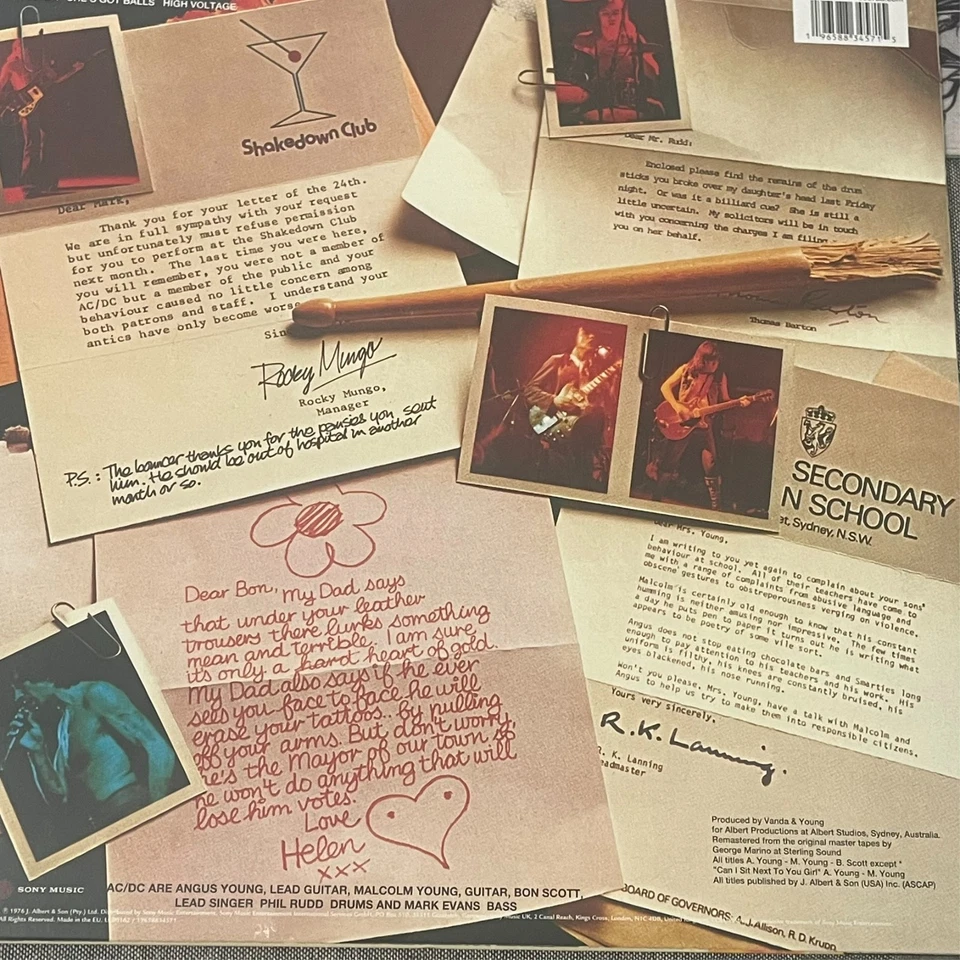 SHE'S GOT BALLS HIGH VOLTAGE
1 96588 34571 5
Shakedown Club
Dear Mark,
Thank you for your letter of the 24th.
We are in full sympathy with your request
but unfortunately must refuse permission
for you to perform at the Shakedown Club
next month. The last time you were here,
you will remember, you were not a member of
AC/DC but a member of the public and your
behaviour caused no little concern among
both patrons and staff. I understand your
antics have only become worse
Sin
Rocky Mungo
Rocky Mungo,
Manager
P.S.: The bouncer thanks you for the pansies you sent
him. He should be out of hospital in another
month or so.
Dear Mr. Rudd:
Enclosed please find the remains of the drum
sticks you broke over my daughter's head last Friday
night. Or was it a billiard cue? She is still a
little uncertain. My solicitors will be in touch
with you concerning the charges I am filing
you on her behalf.
Thomas Barton
SECONDARY
N SCHOOL
et, Sydney, N.S.W.
Dear Mrs. Young,
I am writing to you yet again to complain about your sons'
behaviour at school. All of their teachers have come to
me with a range of complaints from abusive language and
obscene gestures to obstreperousness verging on violence.
Malcolm is certainly old enough to know that his constant
humming is neither amusing nor impressive. The few times
a day he puts pen to paper it turns out he is writing what
appears to be poetry of some vile sort.
Angus does not stop eating chocolate bars and Smarties long
enough to pay attention to his teachers and his work. His
uniform is filthy, his knees are constantly bruised, his
eyes blackened, his nose running.
Won't you please, Mrs. Young, have a talk with Malcolm and
Angus to help us try to make them into responsible citizens.
Yours very sincerely,
R.K. Lanning.
R. K. Lanning
eadmaster
Dear Bon, my Dad says
that under your leather
trousers there lurks something
mean and terrible. I am sure
it's only a hard heart of gold.
My Dad also says if he ever
sees you face to face he will
erase your tattoos.. by pulling
off your arms. But don't worry,
he's the Mayor of our town so
he won't do anything that will
lose him votes.
Love
Helen
xxx
Produced by Vanda & Young
for Albert Productions at Albert Studios, Sydney, Australia.
Remastered from the original master tapes by
George Marino at Sterling Sound
All titles A. Young - M. Young - B. Scott except *
"Can I Sit Next To You Girl" A. Young - M. Young
All titles published by J. Albert & Son (USA) Inc. (ASCAP)
BOARD OF GOVERNORS: A.J. Allison, R. D. Krupp,
SONY MUSIC
AC/DC ARE ANGUS YOUNG, LEAD GUITAR, MALCOLM YOUNG, GUITAR, BON SCOTT,
LEAD SINGER PHIL RUDD DRUMS AND MARK EVANS BASS
℗ © 1976 J. Albert & Son (Pty.) Ltd. Distributed by Sony Music Entertainment.
All Rights Reserved. Made in the EU.